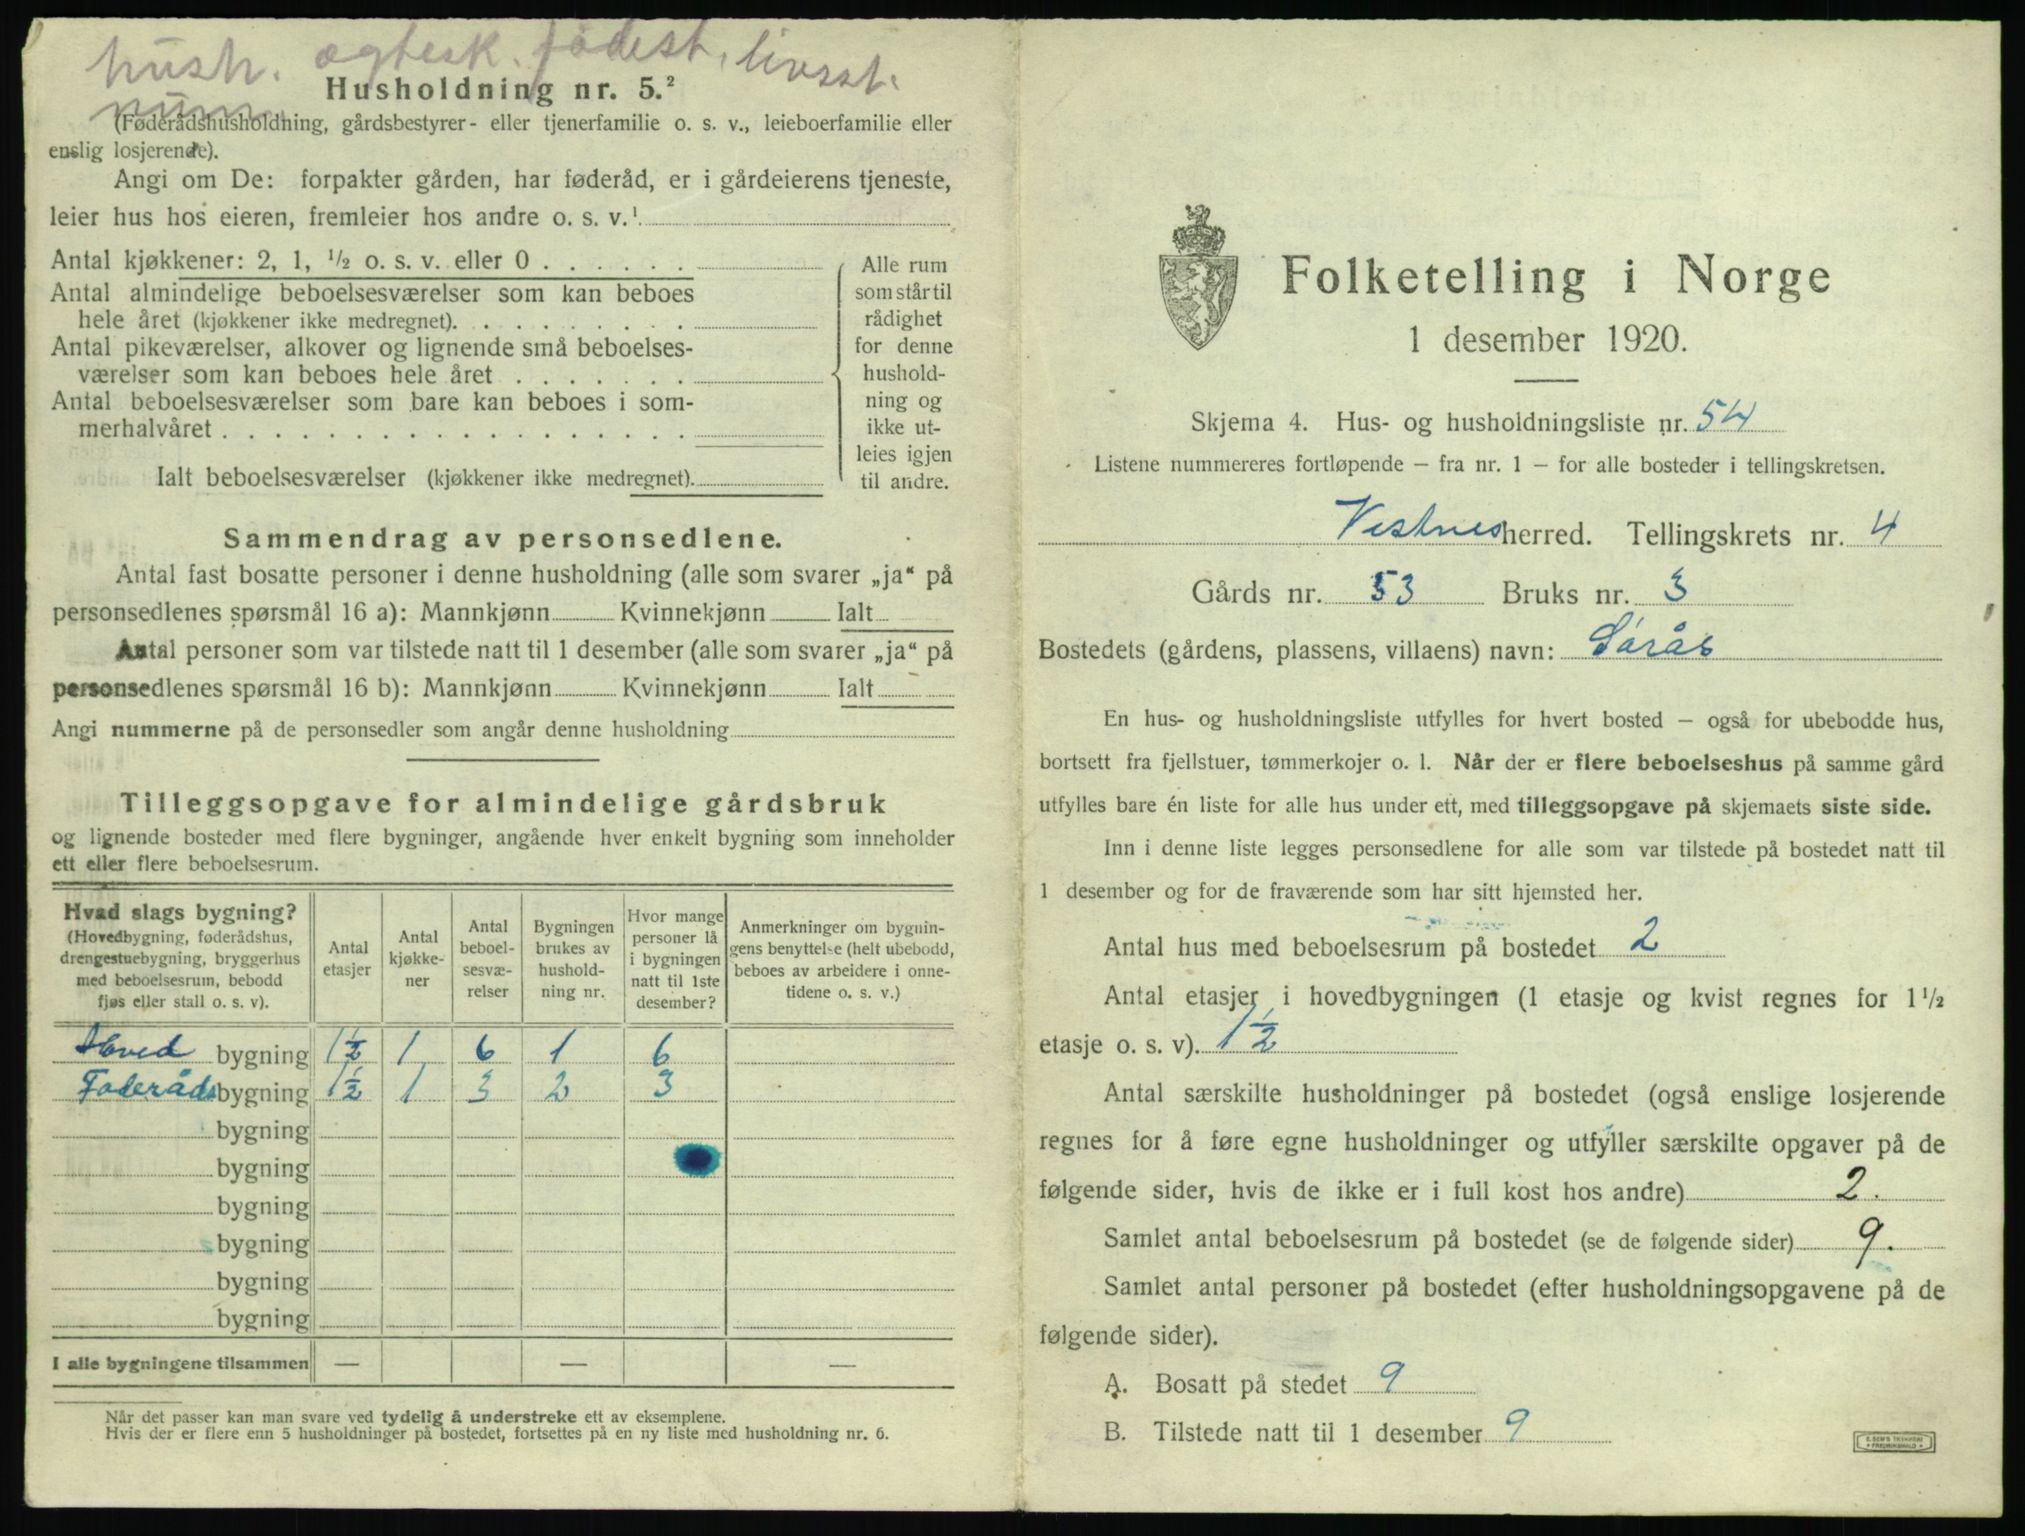 hush. ægtesk. fødest. livsst.
num.
Husholdning nr. 5.²
(Føderådshusholdning, gårdsbestyrer- eller tjenerfamilie o. s. v., leieboerfamilie eller
enslig losjerende).
Angi om De: forpakter gården, har føderåd, er i gårdeierens tjeneste,
leier hus hos eieren, fremleier hos andre o. s. v.¹
Antal kjøkkener: 2, 1, ½ o. s. v. eller 0 . . . . . .
Antal almindelige beboelsesværelser som kan beboes
hele året (kjøkkener ikke medregnet). . . . . . . . .
Antal pikeværelser, alkover og lignende små beboelses-
værelser som kan beboes hele året . . . . . . .
Antal beboelsesværelser som bare kan beboes i som-
merhalvåret . . . . . . . . . . . . . . . . . .
Ialt beboelsesværelser (kjøkkener ikke medregnet).
Alle rum
som står til
rådighet
for denne
hushold-
ning og
ikke ut-
leies igjen
til andre.
Sammendrag av personsedlene.
Antal fast bosatte personer i denne husholdning (alle som svarer „ja“ på
personsedlenes spørsmål 16 a): Mannkjønn Kvinnekjønn Ialt
Antal personer som var tilstede natt til 1 desember (alle som svarer „ja“ på
personsedlenes spørsmål 16 b): Mannkjønn Kvinnekjønn Ialt
Angi nummerne på de personsedler som angår denne husholdning
Tilleggsopgave for almindelige gårdsbruk
og lignende bosteder med flere bygninger, angående hver enkelt bygning som inneholder
ett eller flere beboelsesrum.
Hvad slags bygning?
(Hovedbygning, føderådshus,
drengestuebygning, bryggerhus
med beboelsesrum, bebodd
fjøs eller stall o. s. v).
Antal
etasjer
Antal
kjøkke-
ner
Antal
beboel-
sesvæ-
relser
Bygningen
brukes av
hushold-
ning nr.
Hvor mange
personer lå
i bygningen
natt til 1ste
desember?
Anmerkninger om bygnin-
gens benyttelse (helt ubebodd,
beboes av arbeidere i onne-
tidene o. s. v.)
Hoved bygning 1½ 1 6 1 6
Føderåds bygning 1½ 1 3 2 3
bygning
bygning
bygning
bygning
bygning
bygning
I alle bygningene tilsammen — — —
Når det passer kan man svare ved tydelig å understreke ett av eksemplene.
Hvis der er flere enn 5 husholdninger på bostedet, fortsettes på en ny liste med husholdning nr. 6.
Folketelling i Norge
1 desember 1920.
Skjema 4. Hus- og husholdningsliste nr. 54
Listene nummereres fortløpende — fra nr. 1 — for alle bosteder i tellingskretsen.
Vestnes herred. Tellingskrets nr. 4
Gårds nr. 53 Bruks nr. 3
Bostedets (gårdens, plassens, villaens) navn: Sørås
En hus- og husholdningsliste utfylles for hvert bosted — også for ubebodde hus,
bortsett fra fjellstuer, tømmerkojer o. l. Når der er flere beboelseshus på samme gård
utfylles bare én liste for alle hus under ett, med tilleggsopgave på skjemaets siste side.
Inn i denne liste legges personsedlene for alle som var tilstede på bostedet natt til
1 desember og for de fraværende som har sitt hjemsted her.
Antal hus med beboelsesrum på bostedet 2
Antal etasjer i hovedbygningen (1 etasje og kvist regnes for 1½
etasje o. s. v). 1½
Antal særskilte husholdninger på bostedet (også enslige losjerende
regnes for å føre egne husholdninger og utfyller særskilte opgaver på de
følgende sider, hvis de ikke er i full kost hos andre) 2.
Samlet antal beboelsesrum på bostedet (se de følgende sider) 9.
Samlet antal personer på bostedet (efter husholdningsopgavene på de
følgende sider).
A. Bosatt på stedet 9
B. Tilstede natt til 1 desember 9